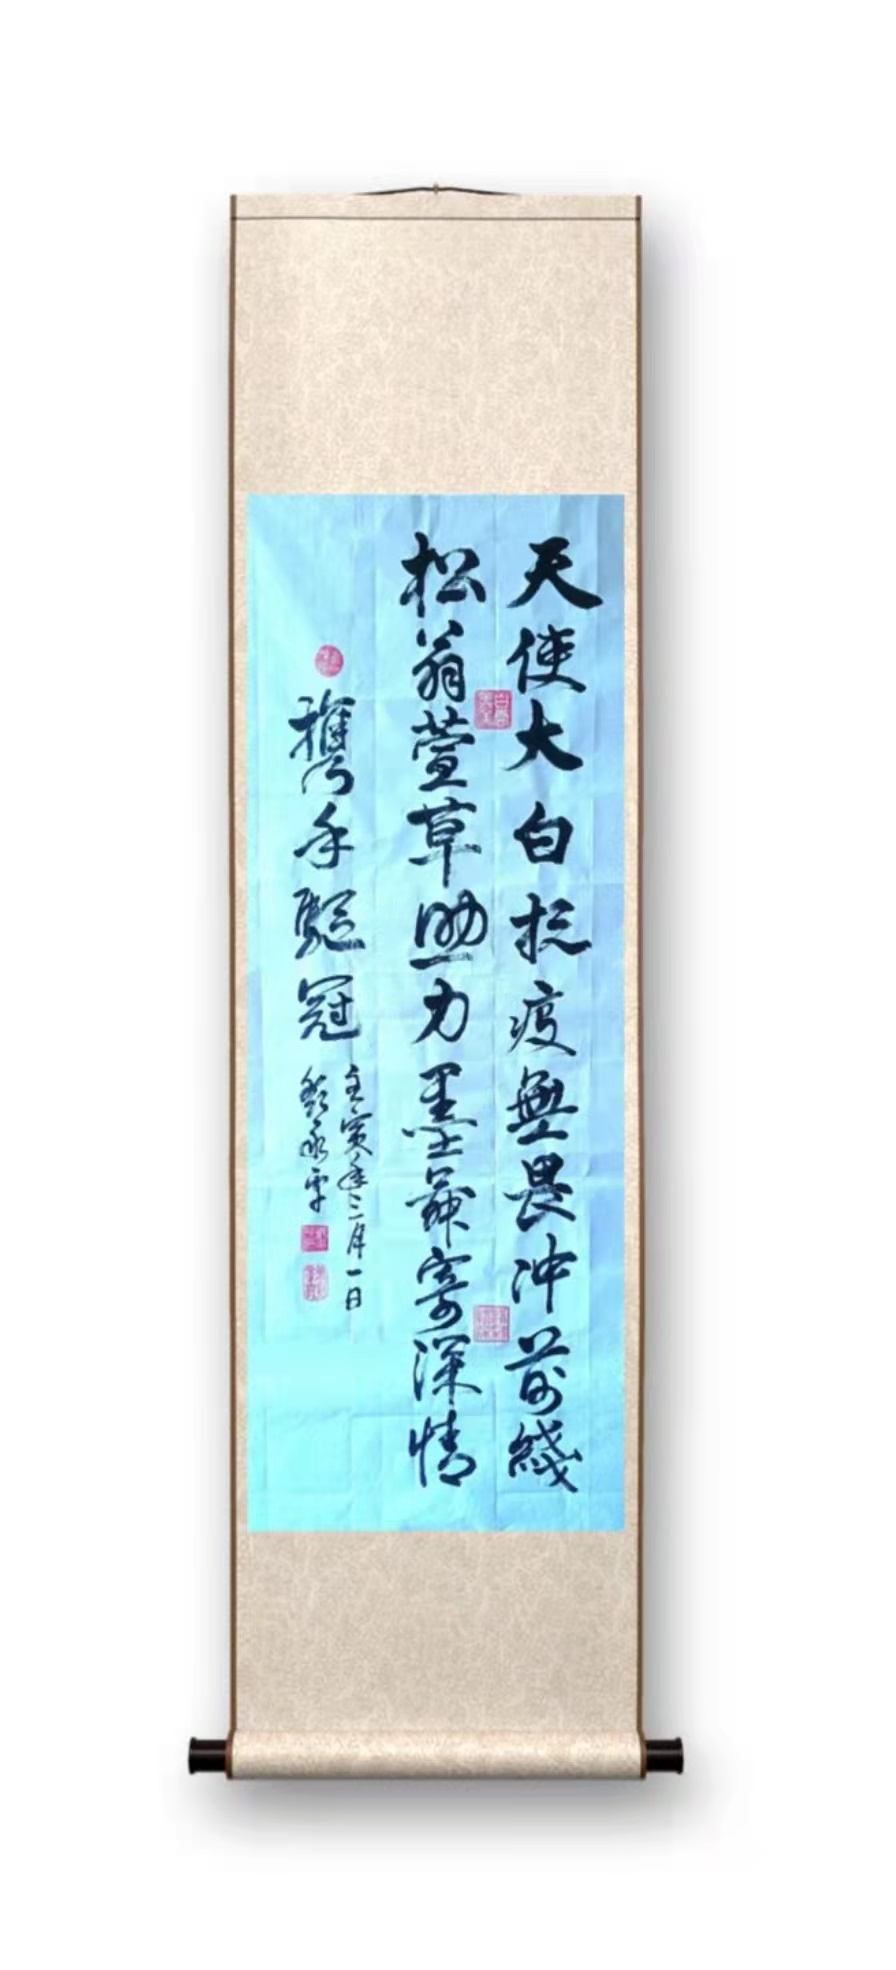 天使大白抗疫無畏冲前綫
松翁萱草助力墨舞寄深情
攜手驅冠
壬寅年三月一日
彭永平